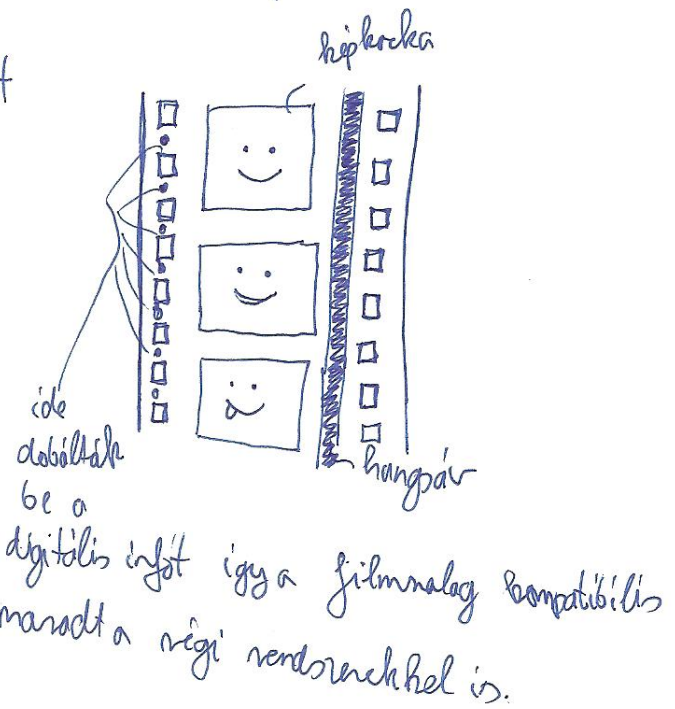 t
képkocka
ide
dobálták
be a
hangsáv
digitális infót így a filmszalag kompatibilis
maradt a régi rendszerekkel is.